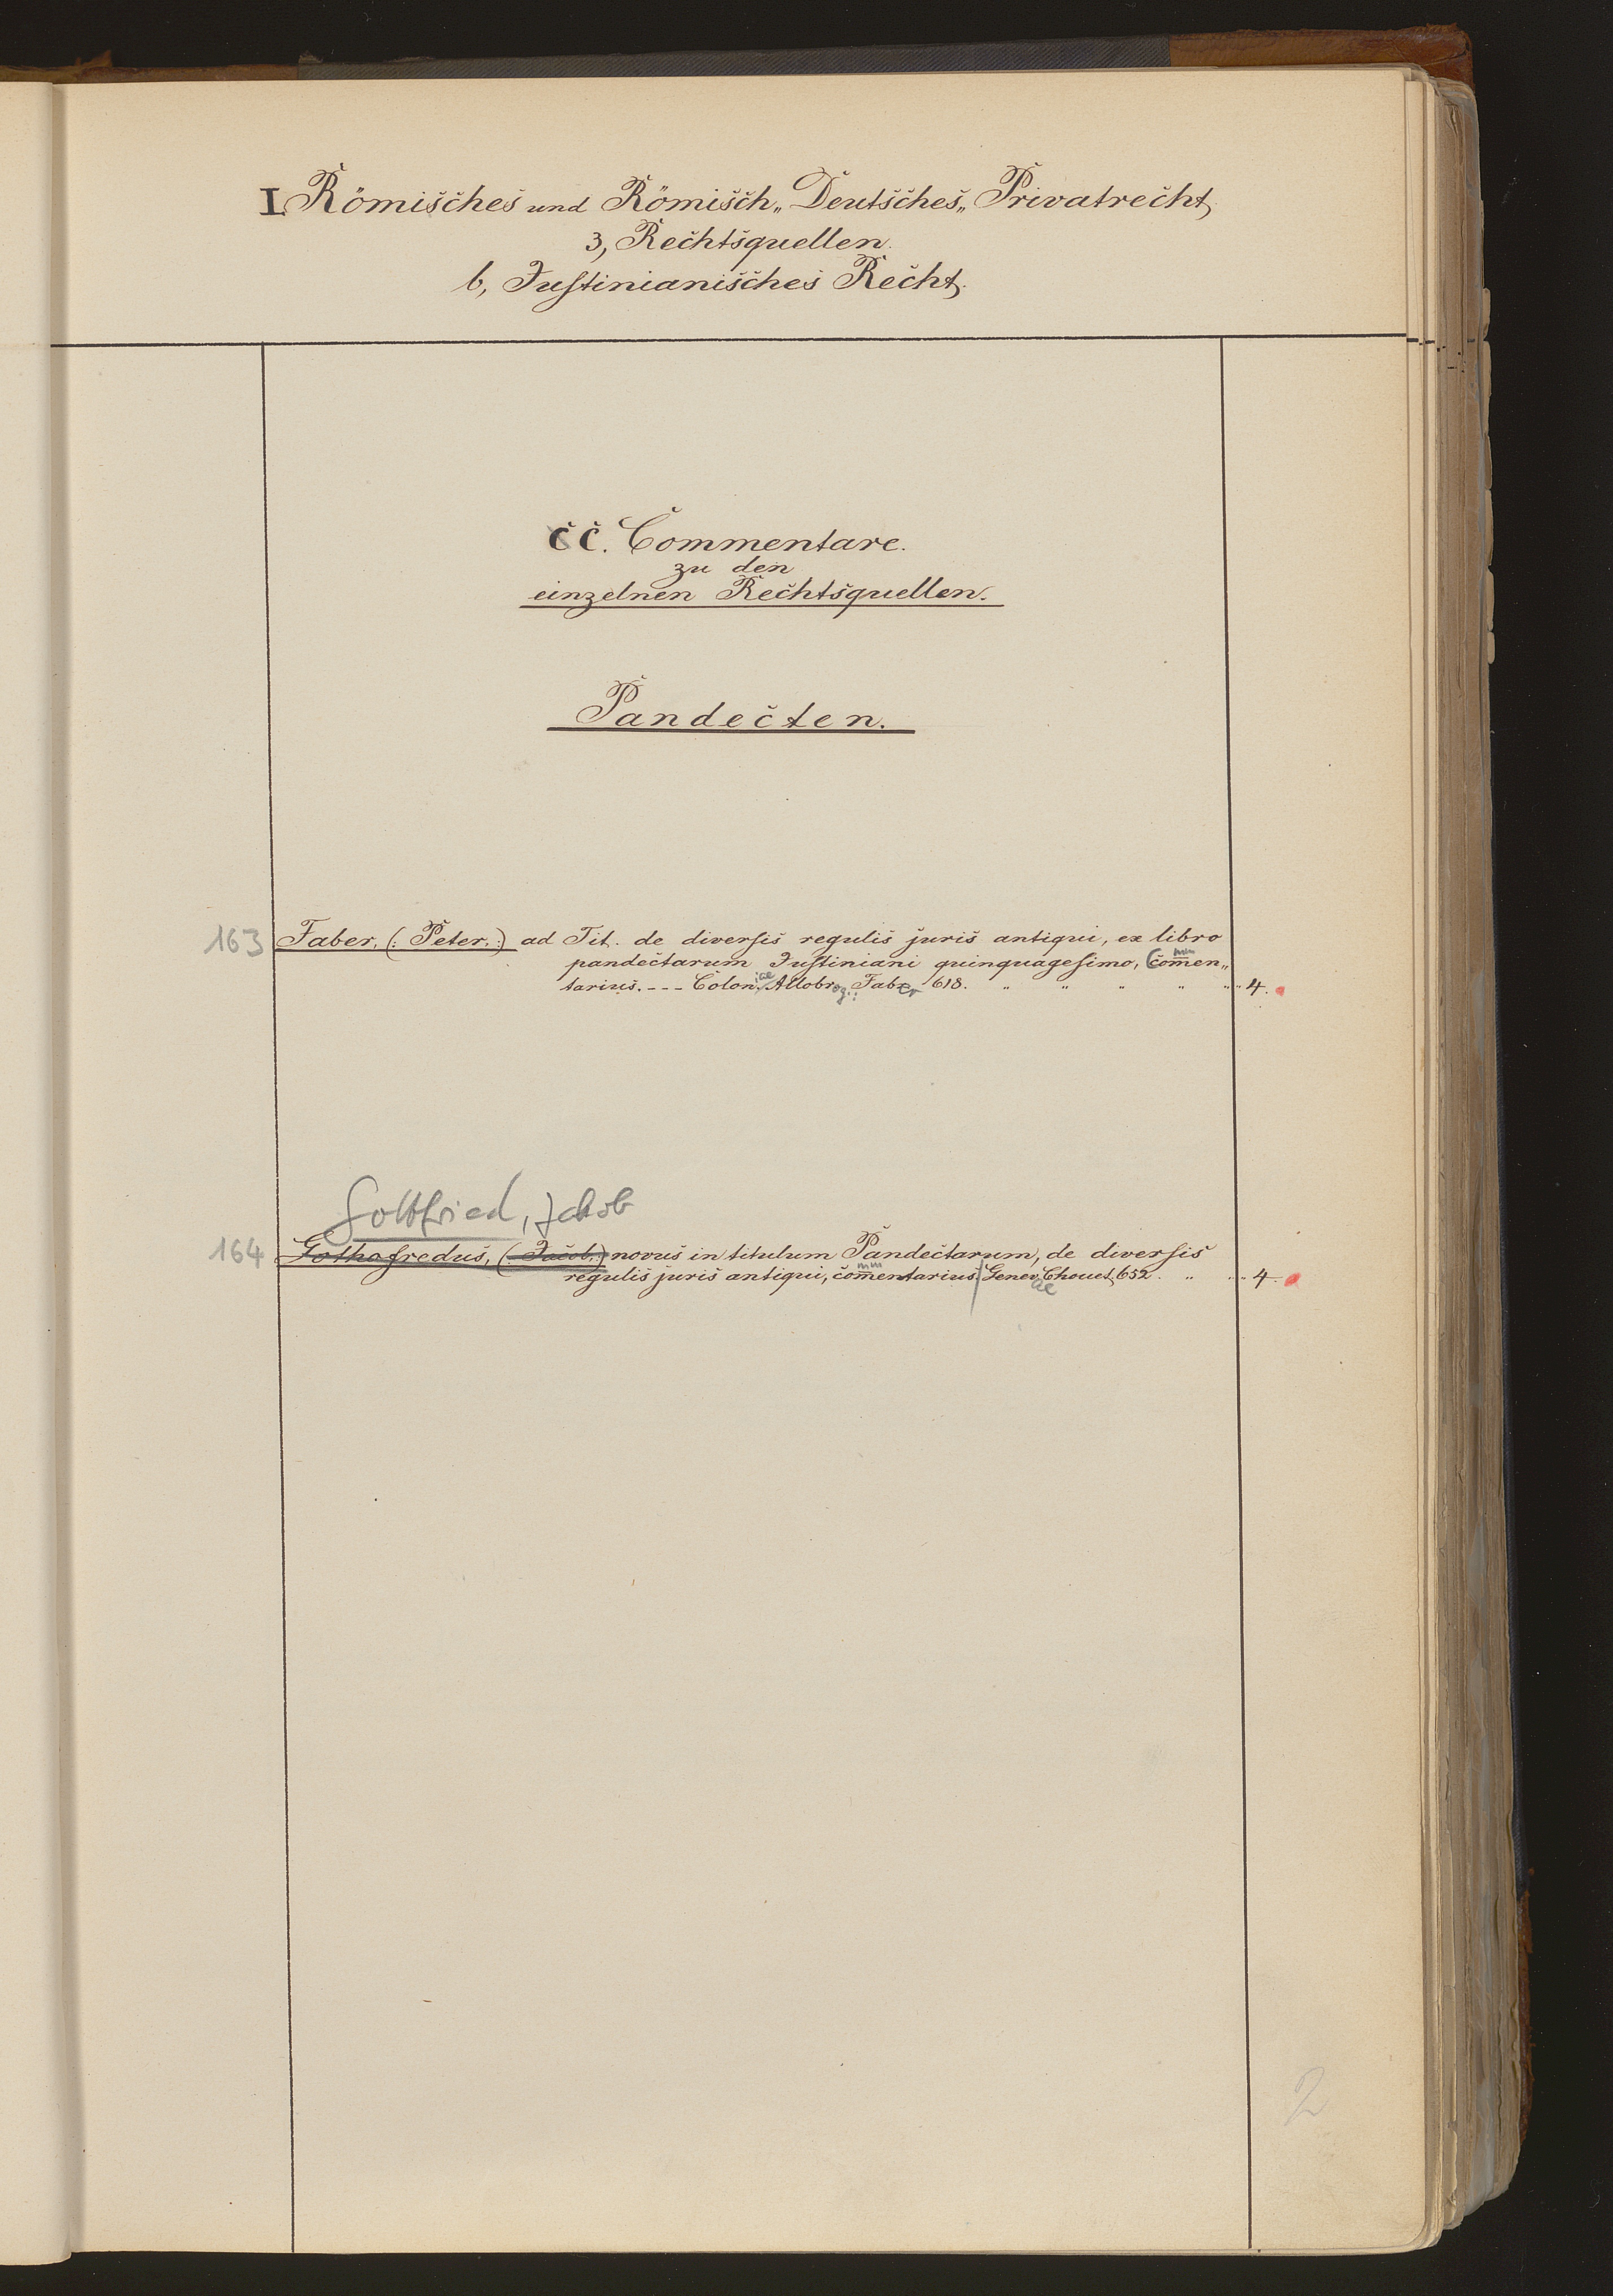 I. Römisches und Römisch„Deutsches„Privatrecht.
3, Rechtsquellen.
b, Justinianisches Recht.
cc. Commentare.
zu den
einzelnen Rechtsquellen.
Pandecten.
163 Faber, (: Peter.:) ad Tit. de diversis regulis juris antiqui, ex libro
pandectarum Justiniani quinquagesimo, Com̄en„
mm
tarius. --- Coloniae Allobrog.: Faber 618. „ „ „ „ „ 4.
Gottfried, Jakob
164 Gothofredus, (: Jacob.:) novus in titulum Pandectarum, de diversis
regulis juris antiqui, com̄entarius. Genevae Chouet, 652. „ „ 4.
mm
2